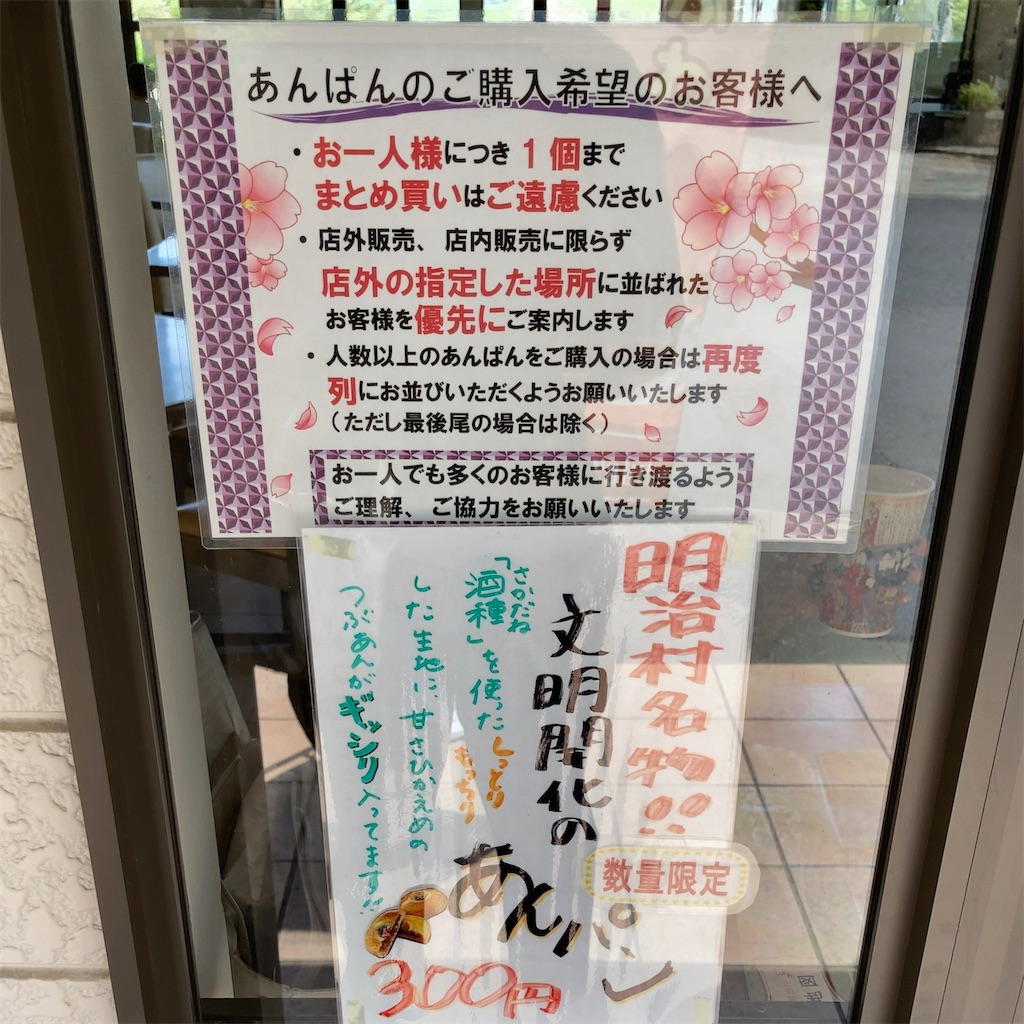 あんぱんのご購入希望のお客様へ
・お一人様につき１個まで
まとめ買いはご遠慮ください
・店外販売、店内販売に限らず
店外の指定した場所に並ばれた
お客様を優先にご案内します
・人数以上のあんぱんをご購入の場合は再度
列にお並びいただくようお願いいたします
（ただし最後尾の場合は除く）
お一人でも多くのお客様に行き渡るよう
ご理解、ご協力をお願いいたします
明治村名物!!
文明開化の
あんパン
数量限定
さかだね
「酒種」を使った
しっとり
もっちり
した生地に、甘さひかえめの
つぶあんがギッシリ入ってます!!
300円